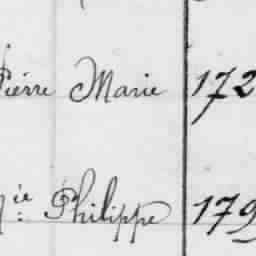 Pierre Marie 172
ie Philippe 179